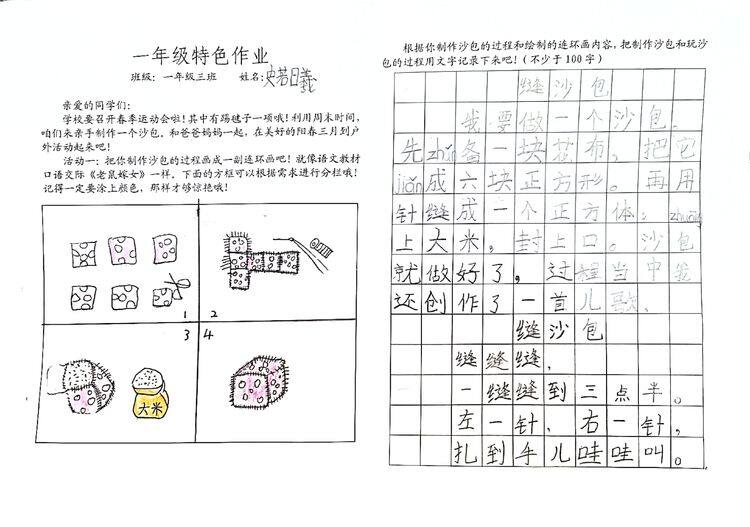 一年级特色作业
班级：一年级三班 姓名：史若曰羲
亲爱的同学们：
学校要召开春季运动会啦！其中有踢毽子一项哦！利用周末时间，
咱们来亲手制作一个沙包，和爸爸妈妈一起，在美好的阳春三月到户
外活动起来吧！
活动一：把你制作沙包的过程画成一副连环画吧！就像语文教材
口语交际《老鼠嫁女》一样，下面的方框可以根据需求进行分栏哦！
记得一定要涂上颜色，那样才够惊艳哦！
1
2
3
大米
4
根据你制作沙包的过程和绘制的连环画内容，把制作沙包和玩沙
包的过程用文字记录下来吧！（不少于100字）
缝沙包
我要做一个沙包。
先zhǔn备一块花布，把它
jiǎn成六块正方形。再用
针缝成一个正方体；zhuāng
上大米，封上口。沙包
就做好了，过程当中我
还创作了一首儿歌。
缝沙包
缝缝缝，
一缝缝到三点半。
左一针，右一针，
扎到手儿哇哇叫。